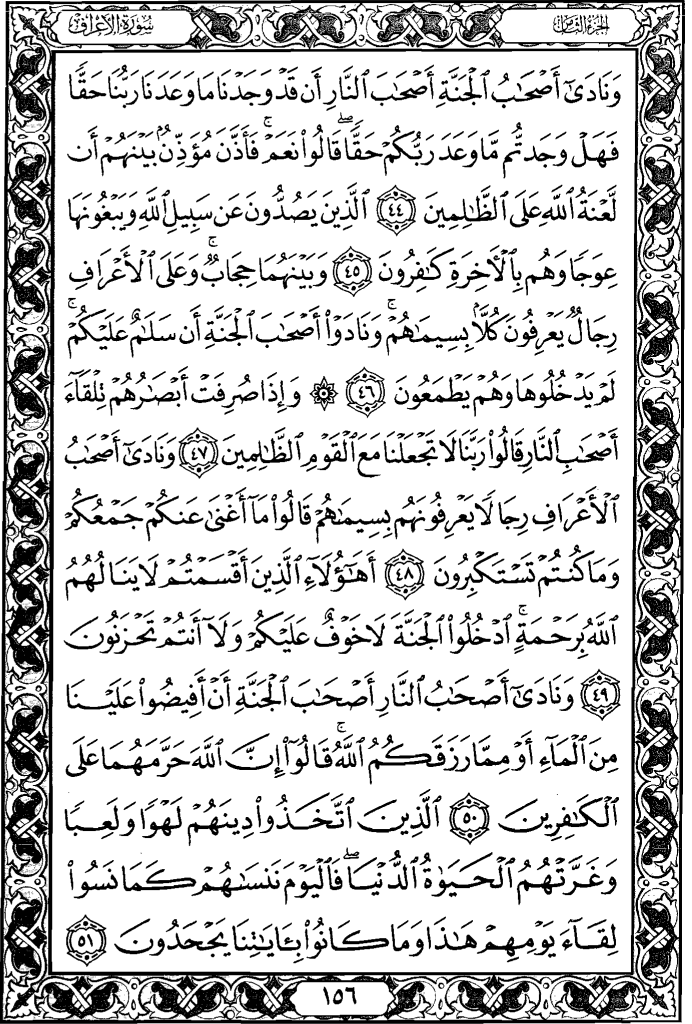 سُورَةُ الأَعْرَافِ
الجُزْءُ الثَّامِنُ
وَنَادَىٰٓ أَصْحَٰبُ ٱلْجَنَّةِ أَصْحَٰبَ ٱلنَّارِ أَن قَدْ وَجَدْنَا مَا وَعَدَنَا رَبُّنَا حَقًّا
فَهَلْ وَجَدتُّم مَّا وَعَدَ رَبُّكُمْ حَقًّا ۖ قَالُوا۟ نَعَمْ ۚ فَأَذَّنَ مُؤَذِّنٌۢ بَيْنَهُمْ أَن
لَّعْنَةُ ٱللَّهِ عَلَى ٱلظَّٰلِمِينَ ٤٤ ٱلَّذِينَ يَصُدُّونَ عَن سَبِيلِ ٱللَّهِ وَيَبْغُونَهَا
عِوَجًا وَهُم بِٱلْءَاخِرَةِ كَٰفِرُونَ ٤٥ وَبَيْنَهُمَا حِجَابٌ ۚ وَعَلَى ٱلْأَعْرَافِ
رِجَالٌ يَعْرِفُونَ كُلًّۢا بِسِيمَىٰهُمْ ۚ وَنَادَوْا۟ أَصْحَٰبَ ٱلْجَنَّةِ أَن سَلَٰمٌ عَلَيْكُمْ ۚ
لَمْ يَدْخُلُوهَا وَهُمْ يَطْمَعُونَ ٤٦ ۞ وَإِذَا صُرِفَتْ أَبْصَٰرُهُمْ تِلْقَآءَ
أَصْحَٰبِ ٱلنَّارِ قَالُوا۟ رَبَّنَا لَا تَجْعَلْنَا مَعَ ٱلْقَوْمِ ٱلظَّٰلِمِينَ ٤٧ وَنَادَىٰٓ أَصْحَٰبُ
ٱلْأَعْرَافِ رِجَالًا يَعْرِفُونَهُم بِسِيمَىٰهُمْ قَالُوا۟ مَآ أَغْنَىٰ عَنكُمْ جَمْعُكُمْ
وَمَا كُنتُمْ تَسْتَكْبِرُونَ ٤٨ أَهَٰٓؤُلَآءِ ٱلَّذِينَ أَقْسَمْتُمْ لَا يَنَالُهُمُ
ٱللَّهُ بِرَحْمَةٍ ۚ ٱدْخُلُوا۟ ٱلْجَنَّةَ لَا خَوْفٌ عَلَيْكُمْ وَلَآ أَنتُمْ تَحْزَنُونَ
٤٩ وَنَادَىٰٓ أَصْحَٰبُ ٱلنَّارِ أَصْحَٰبَ ٱلْجَنَّةِ أَنْ أَفِيضُوا۟ عَلَيْنَا
مِنَ ٱلْمَآءِ أَوْ مِمَّا رَزَقَكُمُ ٱللَّهُ ۚ قَالُوٓا۟ إِنَّ ٱللَّهَ حَرَّمَهُمَا عَلَى
ٱلْكَٰفِرِينَ ٥٠ ٱلَّذِينَ ٱتَّخَذُوا۟ دِينَهُمْ لَهْوًا وَلَعِبًا
وَغَرَّتْهُمُ ٱلْحَيَوٰةُ ٱلدُّنْيَا ۚ فَٱلْيَوْمَ نَنسَىٰهُمْ كَمَا نَسُوا۟
لِقَآءَ يَوْمِهِمْ هَٰذَا وَمَا كَانُوا۟ بِـَٔايَٰتِنَا يَجْحَدُونَ ٥١
١٥٦